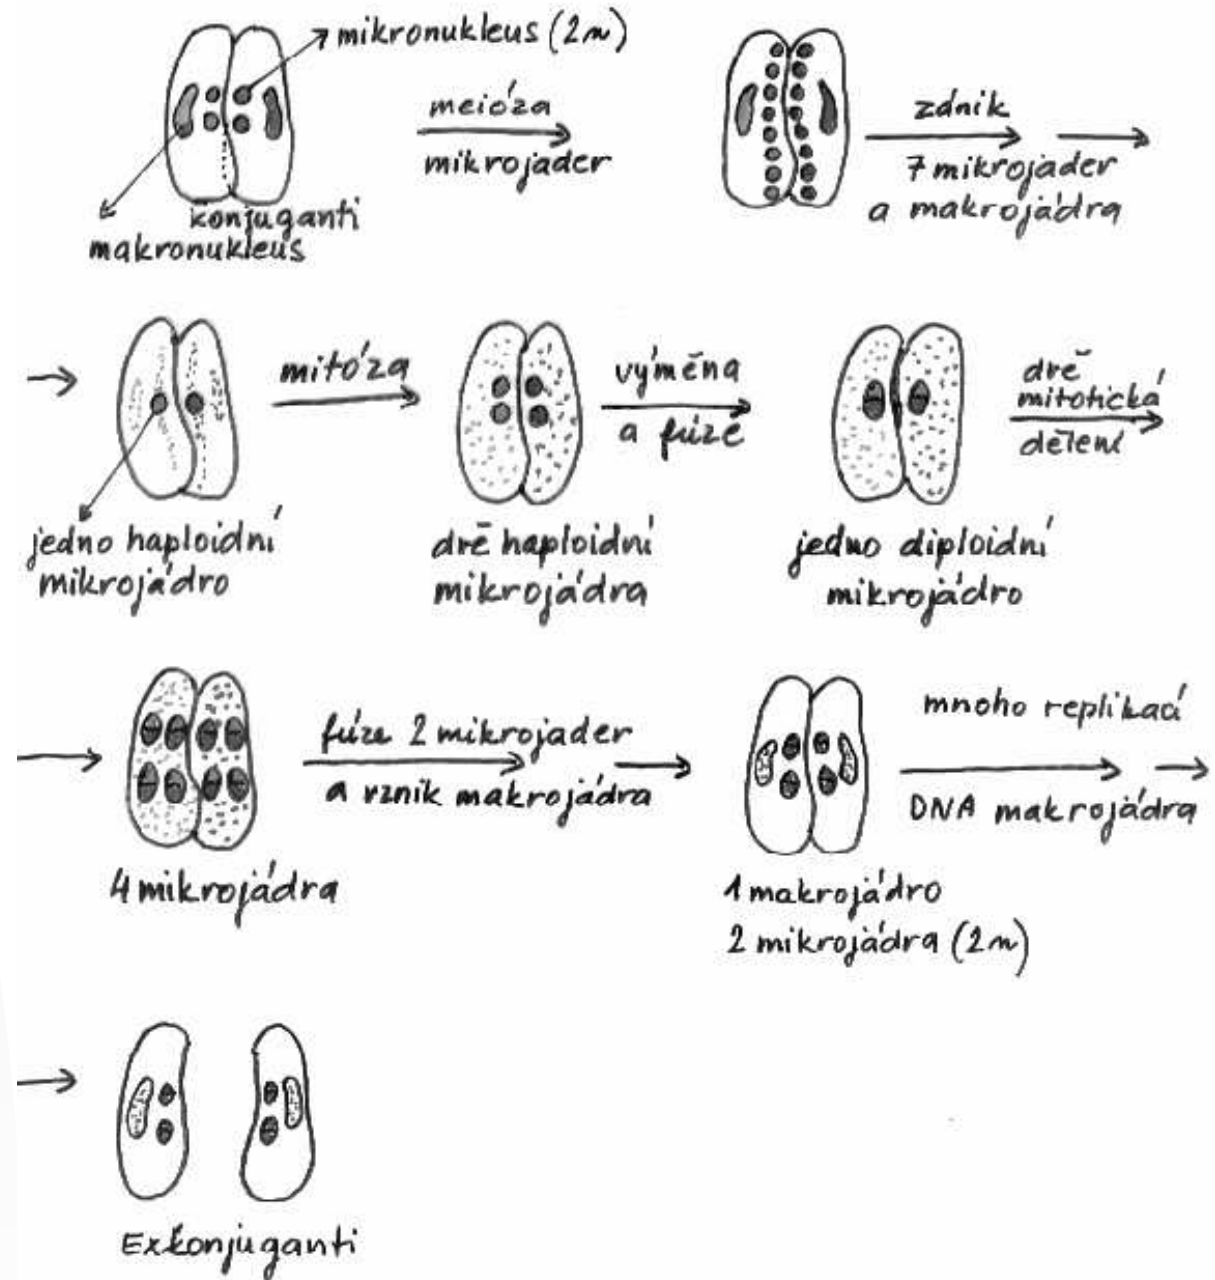 mikronukleus (2n)
meióza
mikrojader
konjuganti
makronukleus
zánik
7 mikrojader
a makrojádra
mitóza
výměna
a fúze
dvě
mitotická
dělení
jedno haploidní
mikrojádro
dvě haploidní
mikrojádra
jedno diploidní
mikrojádro
fúze 2 mikrojader
a vznik makrojádra
mnoho replikací
DNA makrojádra
4 mikrojádra
1 makrojádro
2 mikrojádra (2n)
Exkonjuganti